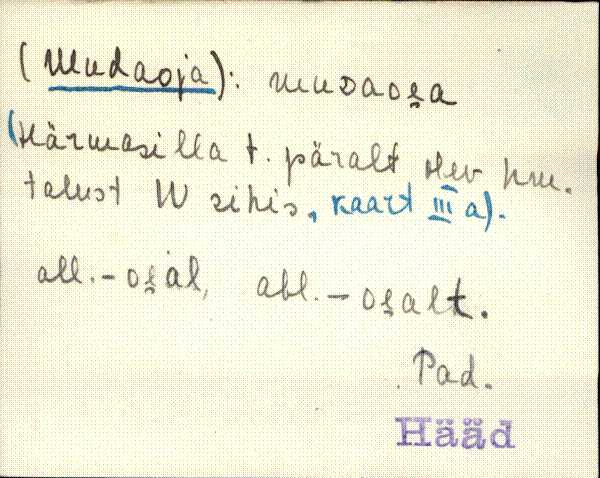 (Mudaoja): mudaoʒa
(Härmasilla t. päralt olev hrm.
talust W sihis, kaart III a).
all. - oʒàl, abl. - oʒalt.
Pad.
Hääd